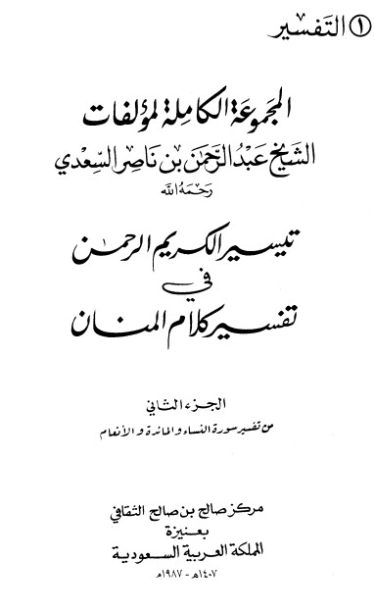 ١ التفسير
المجموعة الكاملة لمؤلفات
الشيخ عبد الرحمن بن ناصر السعدي
رحمه الله
تيسير الكريم الرحمن
في
تفسير كلام المنان
الجزء الثاني
من تفسير سورة النساء والمائدة والأنعام
مركز صالح بن صالح الثقافي
بعنيزة
المملكة العربية السعودية
١٤٠٧هـ - ١٩٨٧م